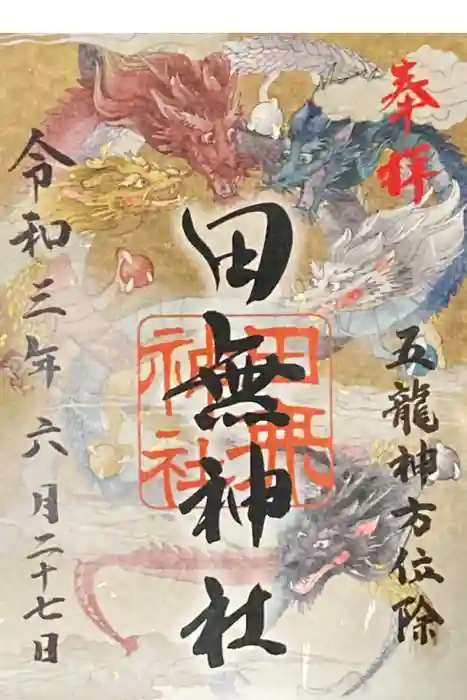 奉拝
五龍神方位除
田無神社
田無神社
令和三年六月二十七日